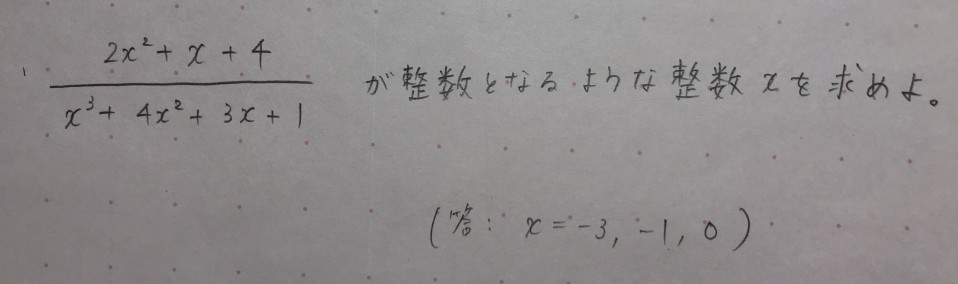 2x²+x+4
x³+4x²+3x+1
が整数となるような整数xを求めよ。
(答: x=-3, -1, 0)